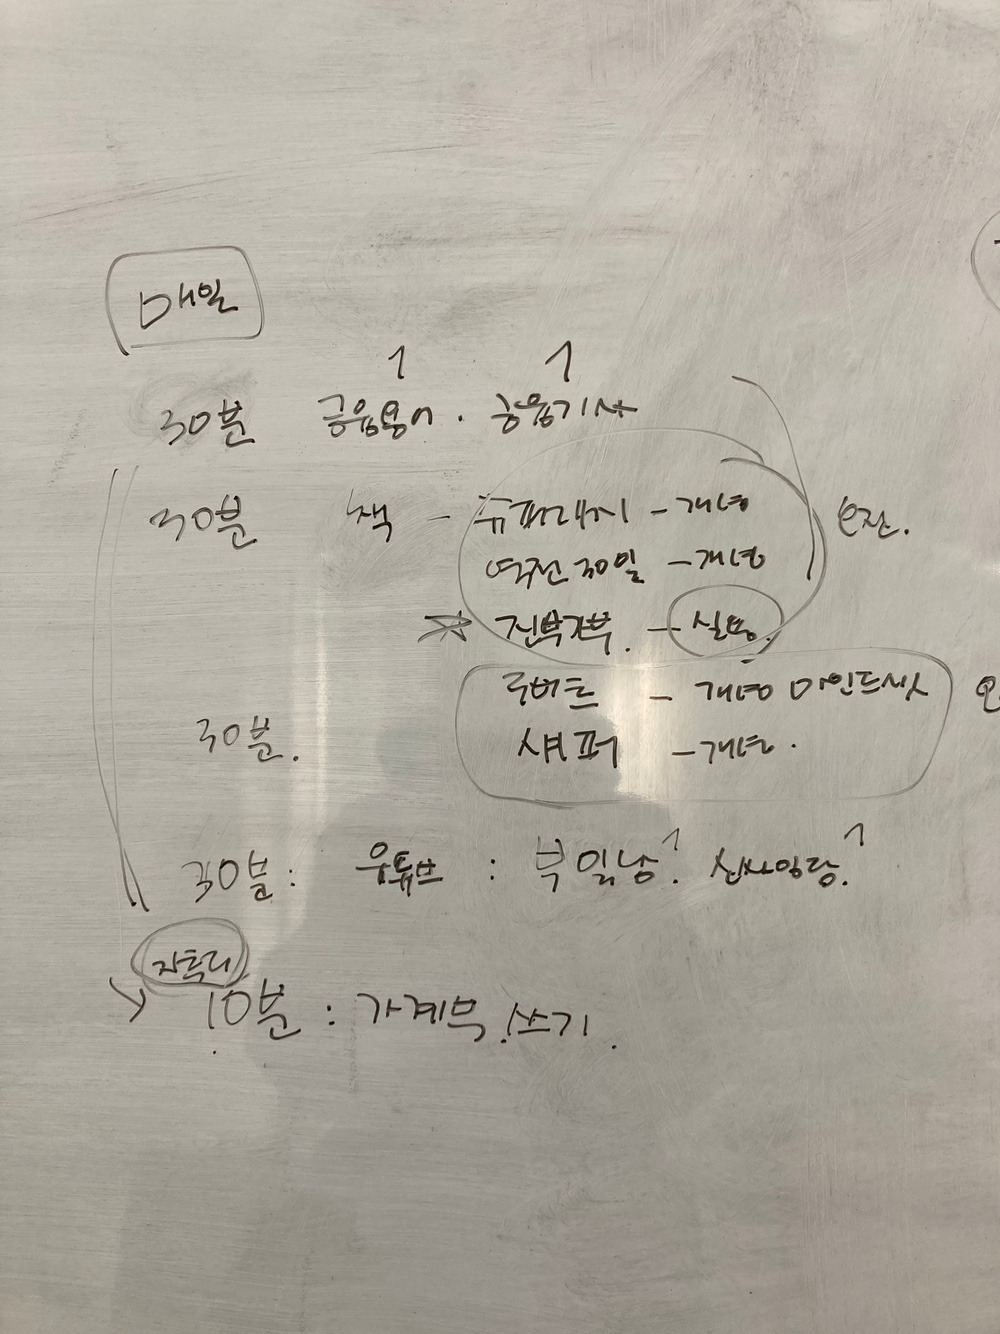 매일
1 1
30분 금융용어 · 금융기사
30분 책 - 규퍼래시 - 개념 오전.
역전 30일 - 개념
☆ 진부자부. - 실용.
로버트 - 개념 마인드셋
30분. 섀퍼 - 개념.
30분: 유튜브 : 부일남? 신사임당?
자투리
→ 10분 : 가계부 쓰기.